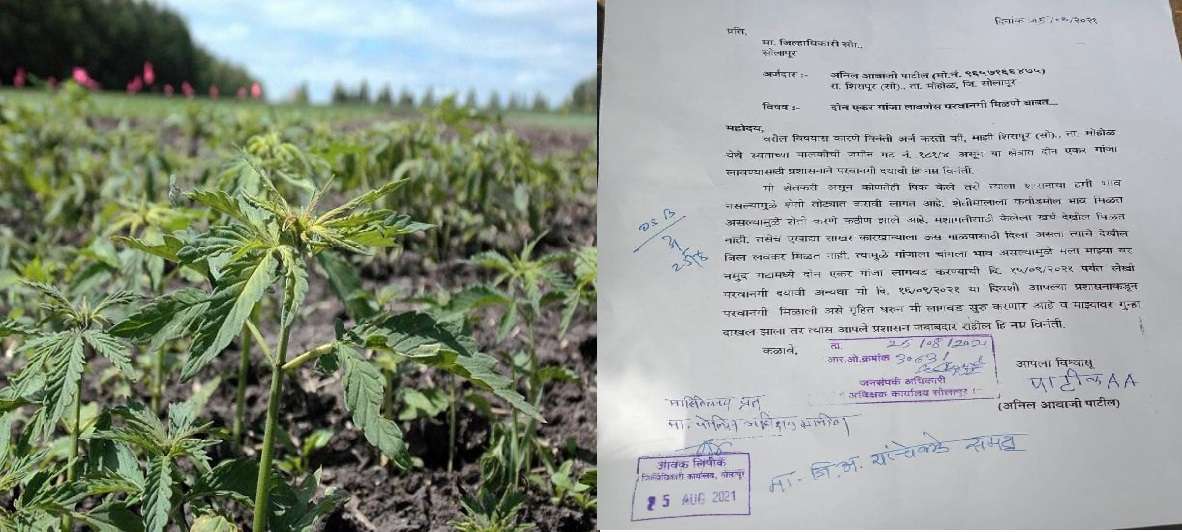 दिनांक २५/०८/२०२१
प्रति,
मा. जिल्हाधिकारी सो.,
सोलापूर
अर्जदार :- अनिल आबाजी पाटील (मो.नं. ९६५७१६६४७५)
रा. शिरापूर (सो)., ता. मोहोळ, जि. सोलापूर
विषय :- दोन एकर गांजा लावणेस परवानगी मिळणे बाबत...
महोदय,
वरील विषयास कारणे विनंती अर्ज करतो की, माझी शिरापूर (सो)., ता. मोहोळ
येथे स्वतःच्या मालकीची जमीन गट नं. १८१/४ असून या क्षेत्रात दोन एकर गांजा
लावण्यासाठी प्रशासनाने परवानगी दयावी हि नम्र विनंती.
मी शेतकरी असून कोणतेही पिक केले तरी त्याला शासनाचा हमी भाव
नसल्यामुळे शेती तोट्यात करावी लागत आहे. शेतीमालाला कवडीमोल भाव मिळत
असल्यामुळे शेती करणे कठीण झाले आहे. मशागतीसाठी केलेला खर्च देखील मिळत
नाही. तसेच एखाद्या साखर कारखान्याला ऊस गाळपासाठी दिला असता त्याचे देखील
बिल लवकर मिळत नाही. त्यामुळे गांजाला चांगला भाव असल्यामुळे मला माझ्या सर
नमुद गटामध्ये दोन एकर गांजा लागवड करण्याची दि. १५/०९/२०२१ पर्यंत लेखी
परवानगी दयावी अन्यथा मी दि. १६/०९/२०२१ या दिवशी आपल्या प्रशासनाकडून
परवानगी मिळाली असे गृहित धरुन मी लागवड सुरु करणार आहे व माझ्यावर गुन्हा
दाखल झाला तर त्यास आपले प्रशासन जबाबदार राहील हि नम्र विनंती.
कळावे,
ता. 25/08/2021
आर.ओ.क्रमांक 3063/
जनसंपर्क अधिकारी
अधिक्षक कार्यालय सोलापूर
आपला विश्वासू
पाटील AA
(अनिल आबाजी पाटील)
माहितीस्तव प्रत
आवक लिपीक
जिल्हाधिकारी कार्यालय, सोलापूर
25 AUG 2021